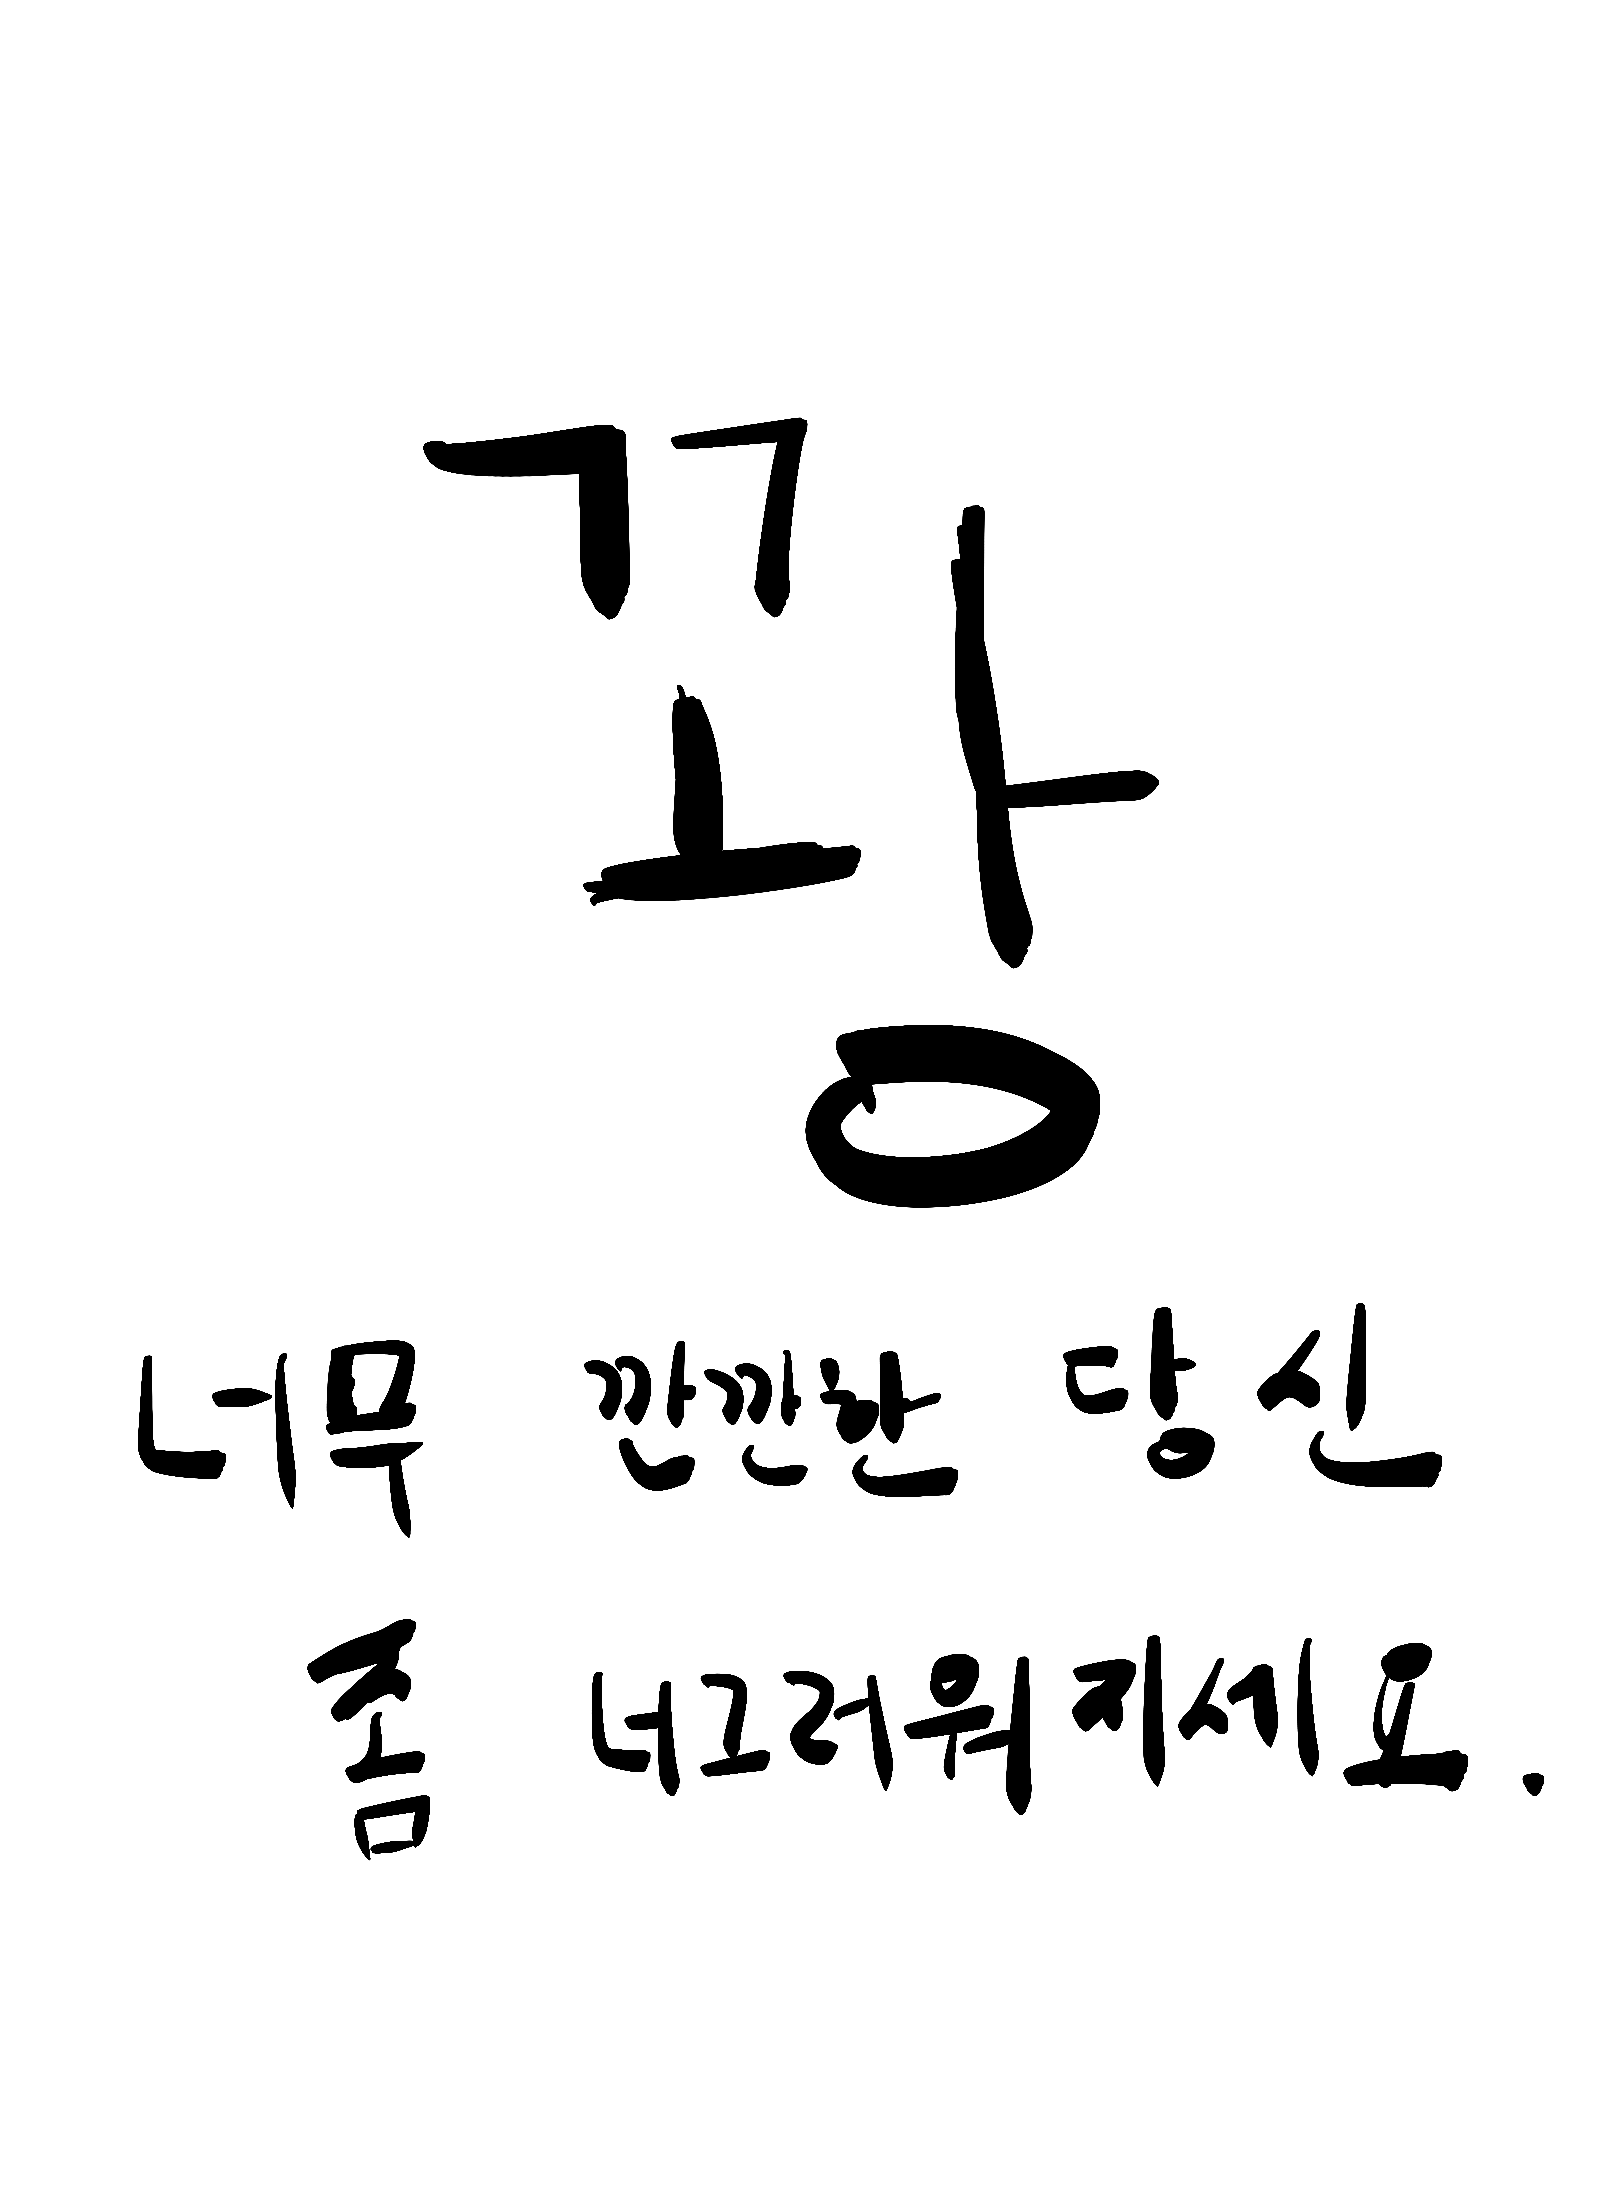 꽝
너무 깐깐한 당신
좀 너그러워지세요.